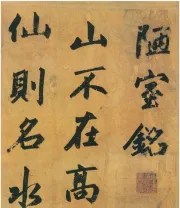 陋室銘
山不在高
仙則名水